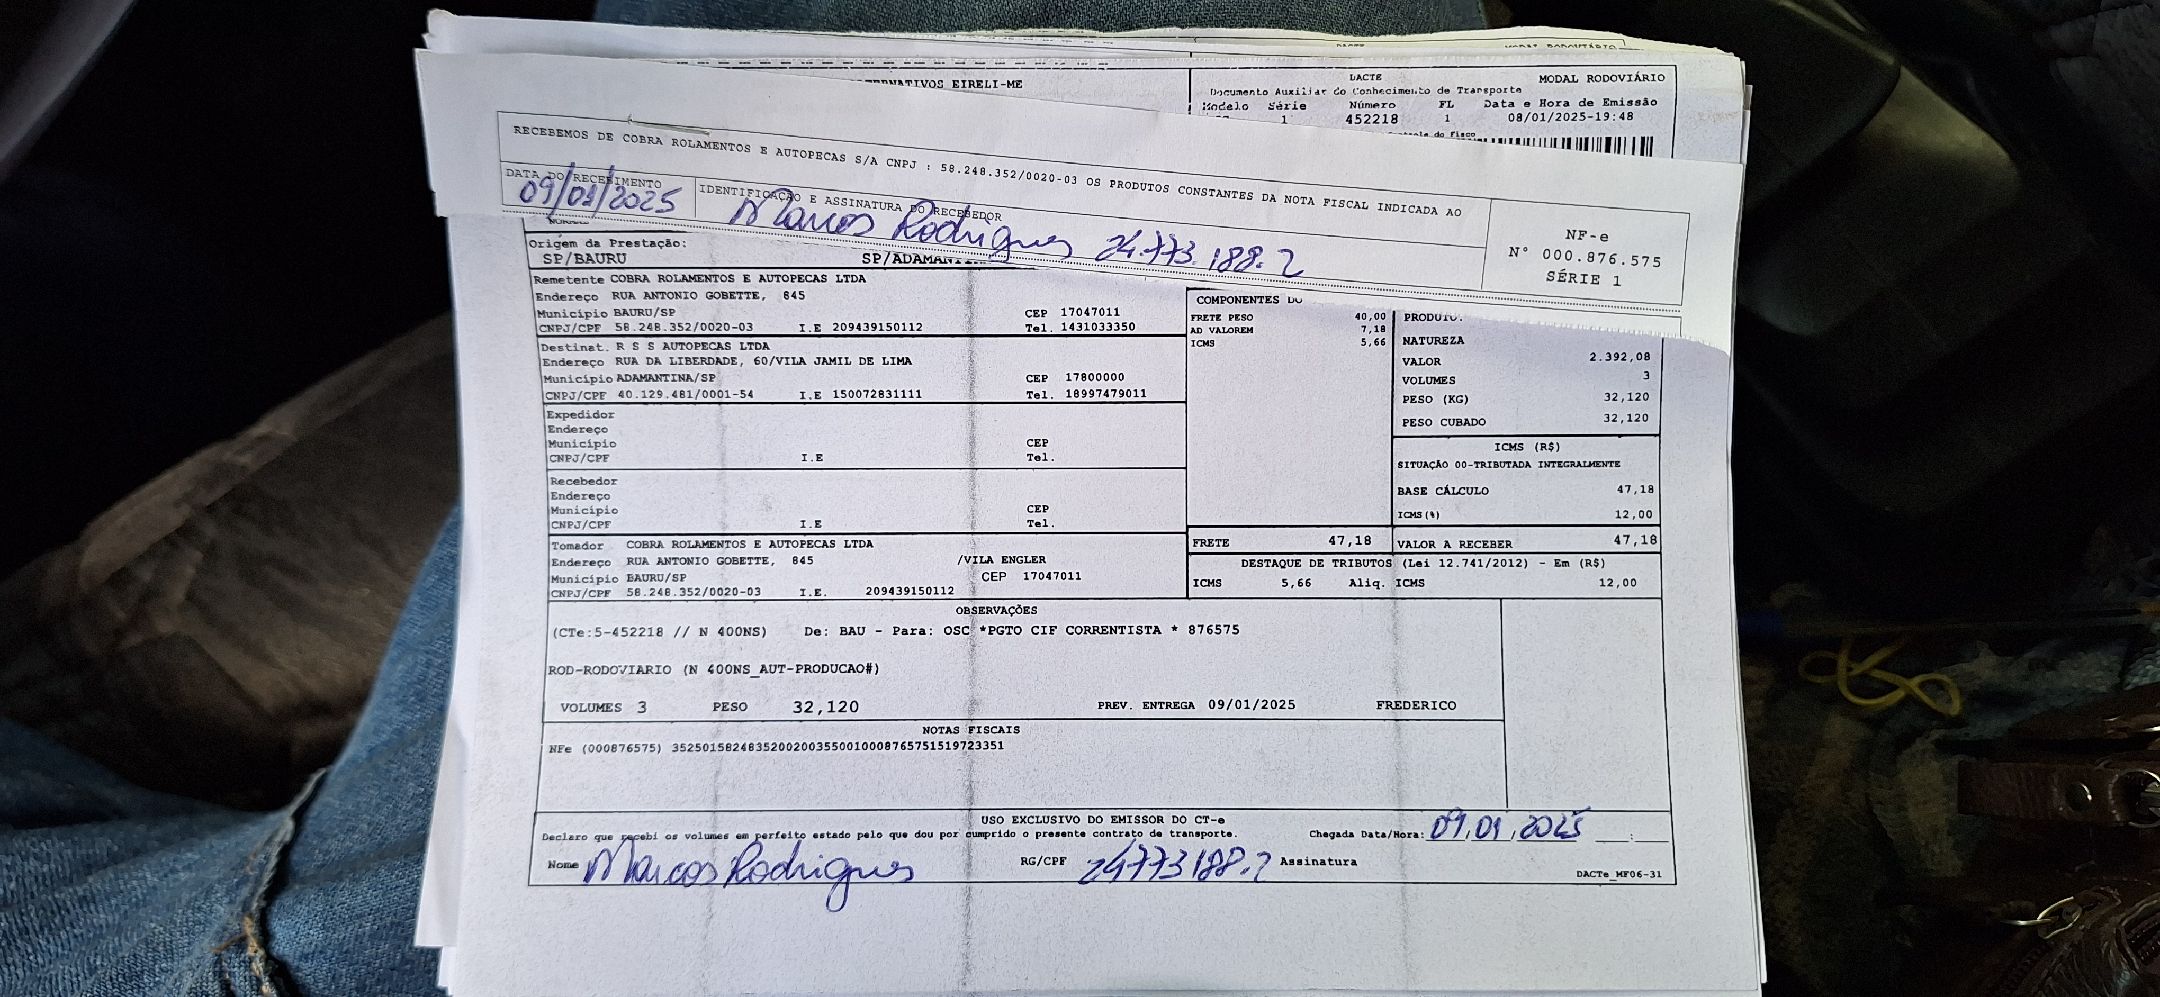 DACTE
MODAL RODOVIÁRIO
EIRELI-ME
Documento Auxiliar do Conhecimento de Transporte
Modelo Série Número FL Data e Hora de Emissão
1 452218 1 08/01/2025-19:48
do Fisco
RECEBEMOS DE COBRA ROLAMENTOS E AUTOPECAS S/A CNPJ : 58.248.352/0020-03 OS PRODUTOS CONSTANTES DA NOTA FISCAL INDICADA AO
DATA DO RECEBIMENTO
09/01/2025
IDENTIFICAÇÃO E ASSINATURA DO RECEBEDOR
Marcos Rodrigues 24.773.188.2
NF-e
N° 000.876.575
SÉRIE 1
Origem da Prestação:
SP/BAURU
Remetente COBRA ROLAMENTOS E AUTOPECAS LTDA
Endereço RUA ANTONIO GOBETTE, 845
Município BAURU/SP CEP 17047011
CNPJ/CPF 58.248.352/0020-03 I.E 209439150112 Tel. 1431033350
Destinat. R S S AUTOPECAS LTDA
Endereço RUA DA LIBERDADE, 60/VILA JAMIL DE LIMA
Município ADAMANTINA/SP CEP 17800000
CNPJ/CPF 40.129.481/0001-54 I.E 150072831111 Tel. 18997479011
Expedidor
Endereço
Município CEP
CNPJ/CPF I.E Tel.
Recebedor
Endereço
Município CEP
CNPJ/CPF I.E Tel.
Tomador COBRA ROLAMENTOS E AUTOPECAS LTDA
Endereço RUA ANTONIO GOBETTE, 845 /VILA ENGLER
Município BAURU/SP CEP 17047011
CNPJ/CPF 58.248.352/0020-03 I.E. 209439150112
COMPONENTES DO
FRETE PESO 40,00
AD VALOREM 7,18
ICMS 5,66
NATUREZA
VALOR 2.392,08
VOLUMES 3
PESO (KG) 32,120
PESO CUBADO 32,120
ICMS (R$)
SITUAÇÃO 00-TRIBUTADA INTEGRALMENTE
BASE CÁLCULO 47,18
ICMS(%) 12,00
FRETE 47,18 VALOR A RECEBER 47,18
DESTAQUE DE TRIBUTOS (Lei 12.741/2012) - Em (R$)
ICMS 5,66 Aliq. ICMS 12,00
OBSERVAÇÕES
(CTe:5-452218 // N 400NS) De: BAU - Para: OSC *PGTO CIF CORRENTISTA * 876575
ROD-RODOVIARIO (N 400NS_AUT-PRODUCAO#)
VOLUMES 3 PESO 32,120 PREV. ENTREGA 09/01/2025 FREDERICO
NOTAS FISCAIS
NFe (000876575) 35250158248352002003550010008765751519723351
USO EXCLUSIVO DO EMISSOR DO CT-e
Declaro que recebi os volumes em perfeito estado pelo que dou por cumprido o presente contrato de transporte. Chegada Data/Hora: 09.01.2025 __:__
Nome Marcos Rodrigues RG/CPF 24773188.2 Assinatura
DACTe_MF06-31